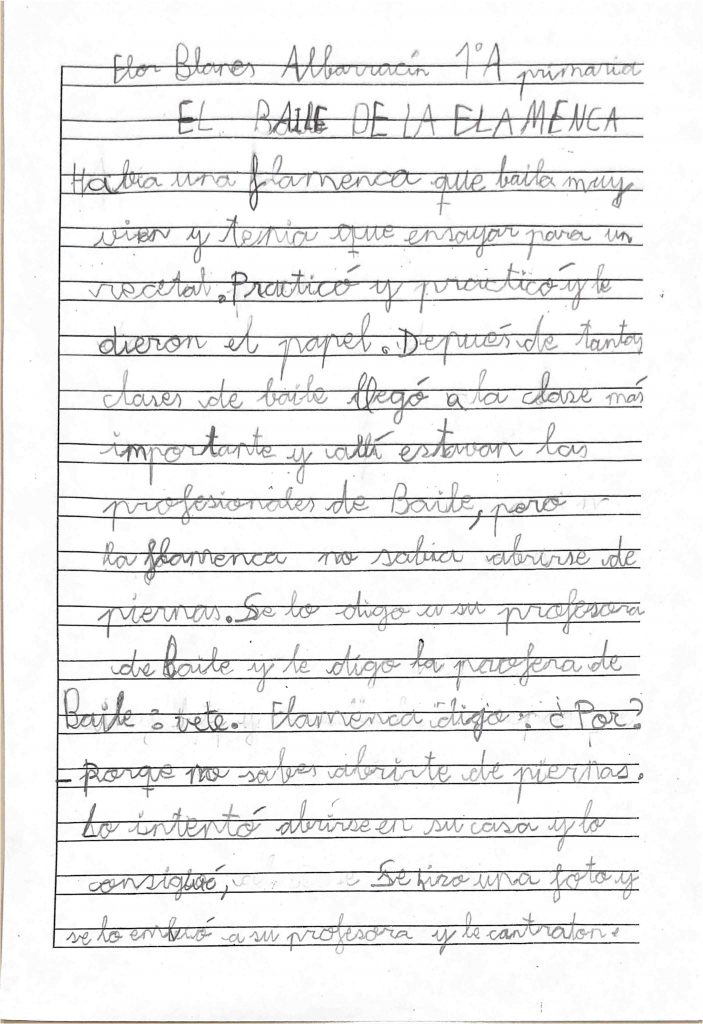 Elor Blanes Albarracín 1ºA primaria
EL BAILE DE LA FLAMENCA
Habia una flamenca que baila muy
vien y tenia que ensayar para un
recetal. Practicó y practicó y le
dieron el papel. Depués de tantas
clases de baile llegó a la clase más
importante y allí estavan las
profesionales de Baile, pero
la flamenca no sabia abrirse de
piernas. Se lo digo a su profesora
de baile y le digo la profera de
Baile: vete. Flamenca digo: ¿Por?
- Porqe no sabes abrirte de piernas.
Lo intentó abrirse en su casa y lo
consiguió, Se hizo una foto y
se lo embió a su profesora y le contraton.